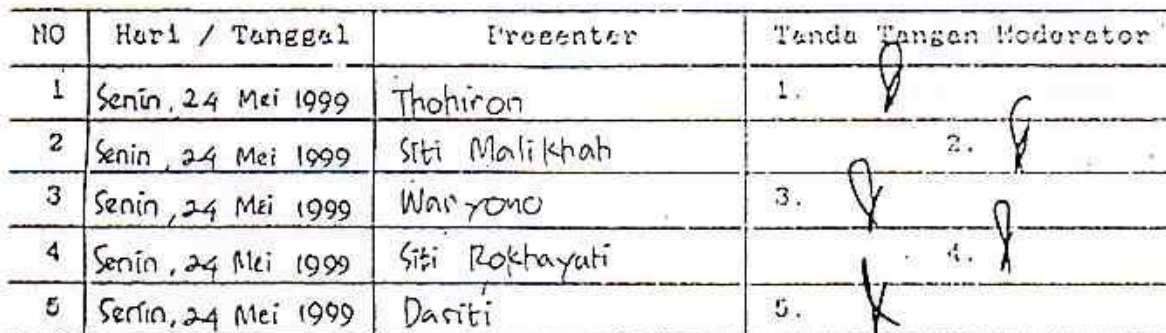 NO Hari / Tanggal Presenter Tanda Tangan Moderator
1 Senin, 24 Mei 1999 Thohiron 1.
2 Senin, 24 Mei 1999 Siti Malikhah 2.
3 Senin, 24 Mei 1999 Waryono 3.
4 Senin, 24 Mei 1999 Siti Rokhayati 4.
5 Senin, 24 Mei 1999 Dariti 5.